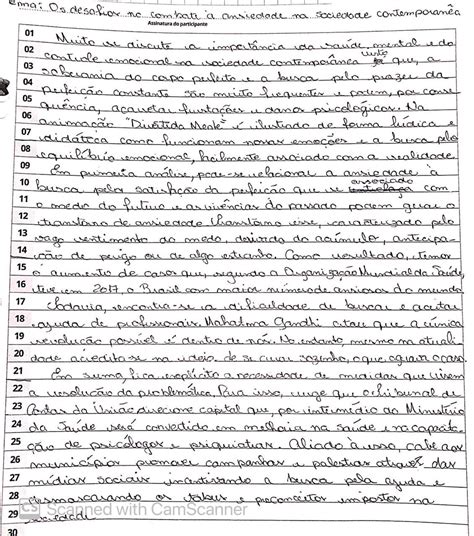 Tema: Os desafios no combate à ansiedade na sociedade contemporânea
Assinatura do participante
01 Muito se discute a importância da saúde mental e do
02 controle emocional na sociedade contemporânea visto que, a
03 soberania do corpo perfeito e a busca pelo prazer da
04 perfeição constante são muito frequentes e podem, por conse
05 quência, acarretar frustações e danos psicológicos. Na
06 animação "Divertida Mente" é ilustrado de forma lúdica e
07 didática como funcionam nossas emoções e a busca pelo
08 equilíbrio emocional, facilmente associado com a realidade.
09 Em primeira análise, pode-se relacionar a ansiedade à
10 busca pela satisfação da perfeição que se associado com
11 o medo do futuro e as vivências do passado podem gerar o
12 transtorno de ansiedade. Transtorno esse, caracterizado pelo
13 vago sentimento do medo, derivado do acúmulo, antecipa-
14 ção de perigo ou de algo estranho. Como resultado, temos
15 o aumento de casos que, segundo a Organização Mundial da Saúde,
16 teve em 2017, o Brasil com maior número de ansiosos do mundo.
17 Todavia, encontra-se a dificuldade de buscar e aceitar
18 ajuda de profissionais. Mahatma Gandhi citou que a única
19 revolução possível é dentro de nós. No entanto, mesmo na atuali
20 dade acredita-se na ideia de se curar sozinho, o que agrava o caso.
21 Em suma, fica explícito a necessidade de medidas que visem
22 a resolução da problemática. Para isso, urge que o Tribunal de
23 Contas da União direcione capital que, por intermédio do Ministério
24 da Saúde será convertido em melhoria na saúde e na capacita-
25 ção de psicólogos e psiquiatras. Aliado à isso, cabe aos
26 municípios promover campanhas e palestras através das
27 mídias sociais incentivando a busca pela ajuda e
28 desmascarando os tabus e preconceitos impostos na
29 sociedade
30
CS Scanned with CamScanner